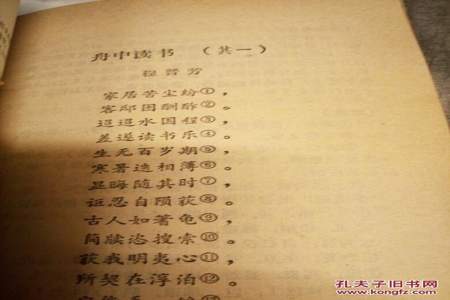 舟中读书（其一）
程晋芳
家居苦尘纷①，
客邸困酬酢②。
迢迢水国程③，
差遂读书乐④。
生无百岁期⑤，
寒暑迭相薄⑥。
显晦随其时⑦，
讵忍自陨获⑧。
古人如蓍龟⑨，
简牍恣搜索⑩。
获我明夷心⑪，
所契在淳泊⑫。
孔夫子旧书网
www.kongfz.com